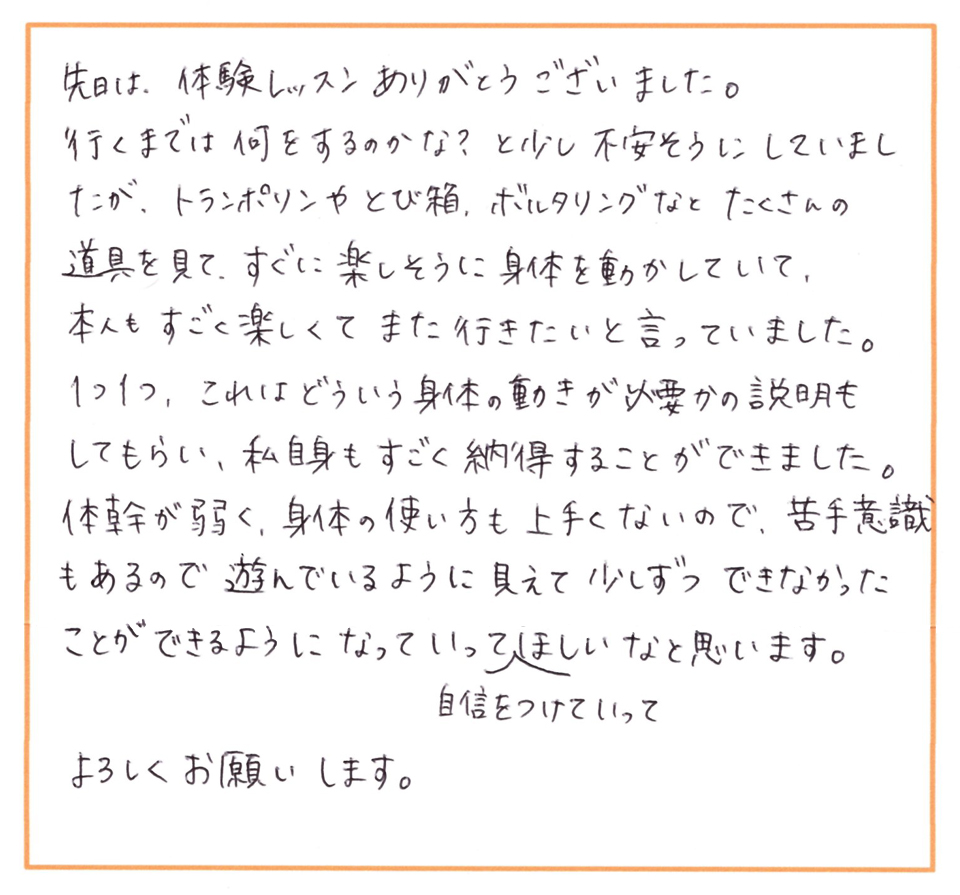 先日は、体験レッスンありがとうございました。
行くまでは何をするのかな？と少し不安そうにしていまし
たが、トランポリンやとび箱、ボルタリングなどたくさんの
道具を見て、すぐに楽しそうに身体を動かしていて、
本人もすごく楽しくてまた行きたいと言っていました。
1つ1つ、これはどういう身体の動きが必要かの説明も
してもらい、私自身もすごく納得することができました。
体幹が弱く、身体の使い方も上手くないので、苦手意識
もあるので遊んでいるように見えて少しずつできなかった
ことができるようになっていってほしいなと思います。
自信をつけていって
よろしくお願いします。